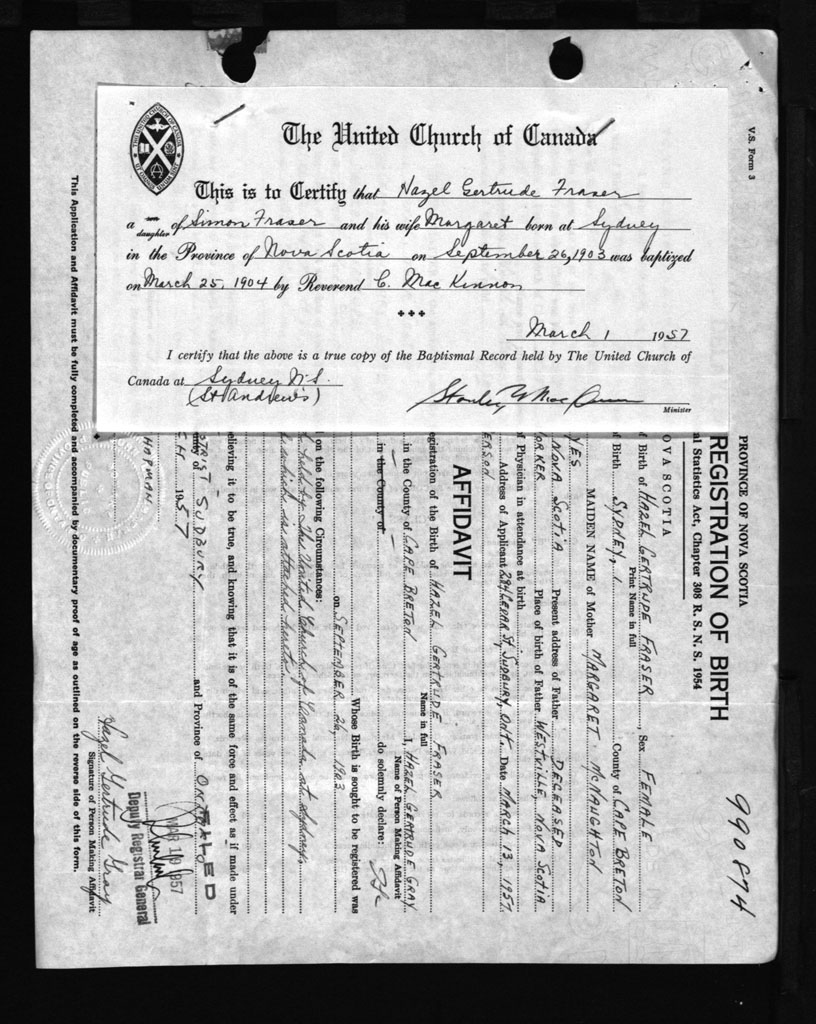 The United Church of Canada
This is to Certify that Hazel Gertrude Fraser
a son daughter of Simon Fraser and his wife Margaret born at Sydney
in the Province of Nova Scotia on September 26, 1903 was baptized
on March 25, 1904 by Reverend C. Mac Kinnon
March 1 1957
I certify that the above is a true copy of the Baptismal Record held by The United Church of
Canada at Sydney N.S.
(St Andrew's)
Minister
V.S. Form 3
990874
PROVINCE OF NOVA SCOTIA
REGISTRATION OF BIRTH
al Statistics Act, Chapter 308 R. S. N. S. 1954
OVA SCOTIA
f Birth of HAZEL GERTRUDE FRASER, Sex FEMALE
Print Name in full
f Birth SYDNEY, 1 County of CAPE BRETON
MAIDEN NAME of Mother MARGARET MCNAUGHTON
YES
NOVA SCOTIA Present address of Father DECEASED
ORKER Place of birth of Father WESTVILLE, NOVA SCOTIA
f Physician in attendance at birth
Address of Applicant 294 CEDAR ST, SUDBURY, ONT. Date MARCH 13, 1957
ERSON
AFFIDAVIT
egistration of the Birth of HAZEL GERTRUDE FRASER
Name in full
in the County of CAPE BRETON I, HAZEL GERTRUDE GRAY
Name of Person Making Affidavit
in the County of do solemnly declare:
Whose Birth is sought to be registered was
on SEPTEMBER 26, 1903
on the following Circumstances:
held by The United Church of Canada at Sydney,
which is attached hereto
elieving it to be true, and knowing that it is of the same force and effect as if made under
STRICT SUDBURY and Province of ONTARIO
CH 1957
HOPMAN
MAR 19 1957
Deputy Registrar General
Hazel Gertrude Gray
Signature of Person Making Affidavit
This Application and Affidavit must be fully completed and accompanied by documentary proof of age as outlined on the reverse side of this form.